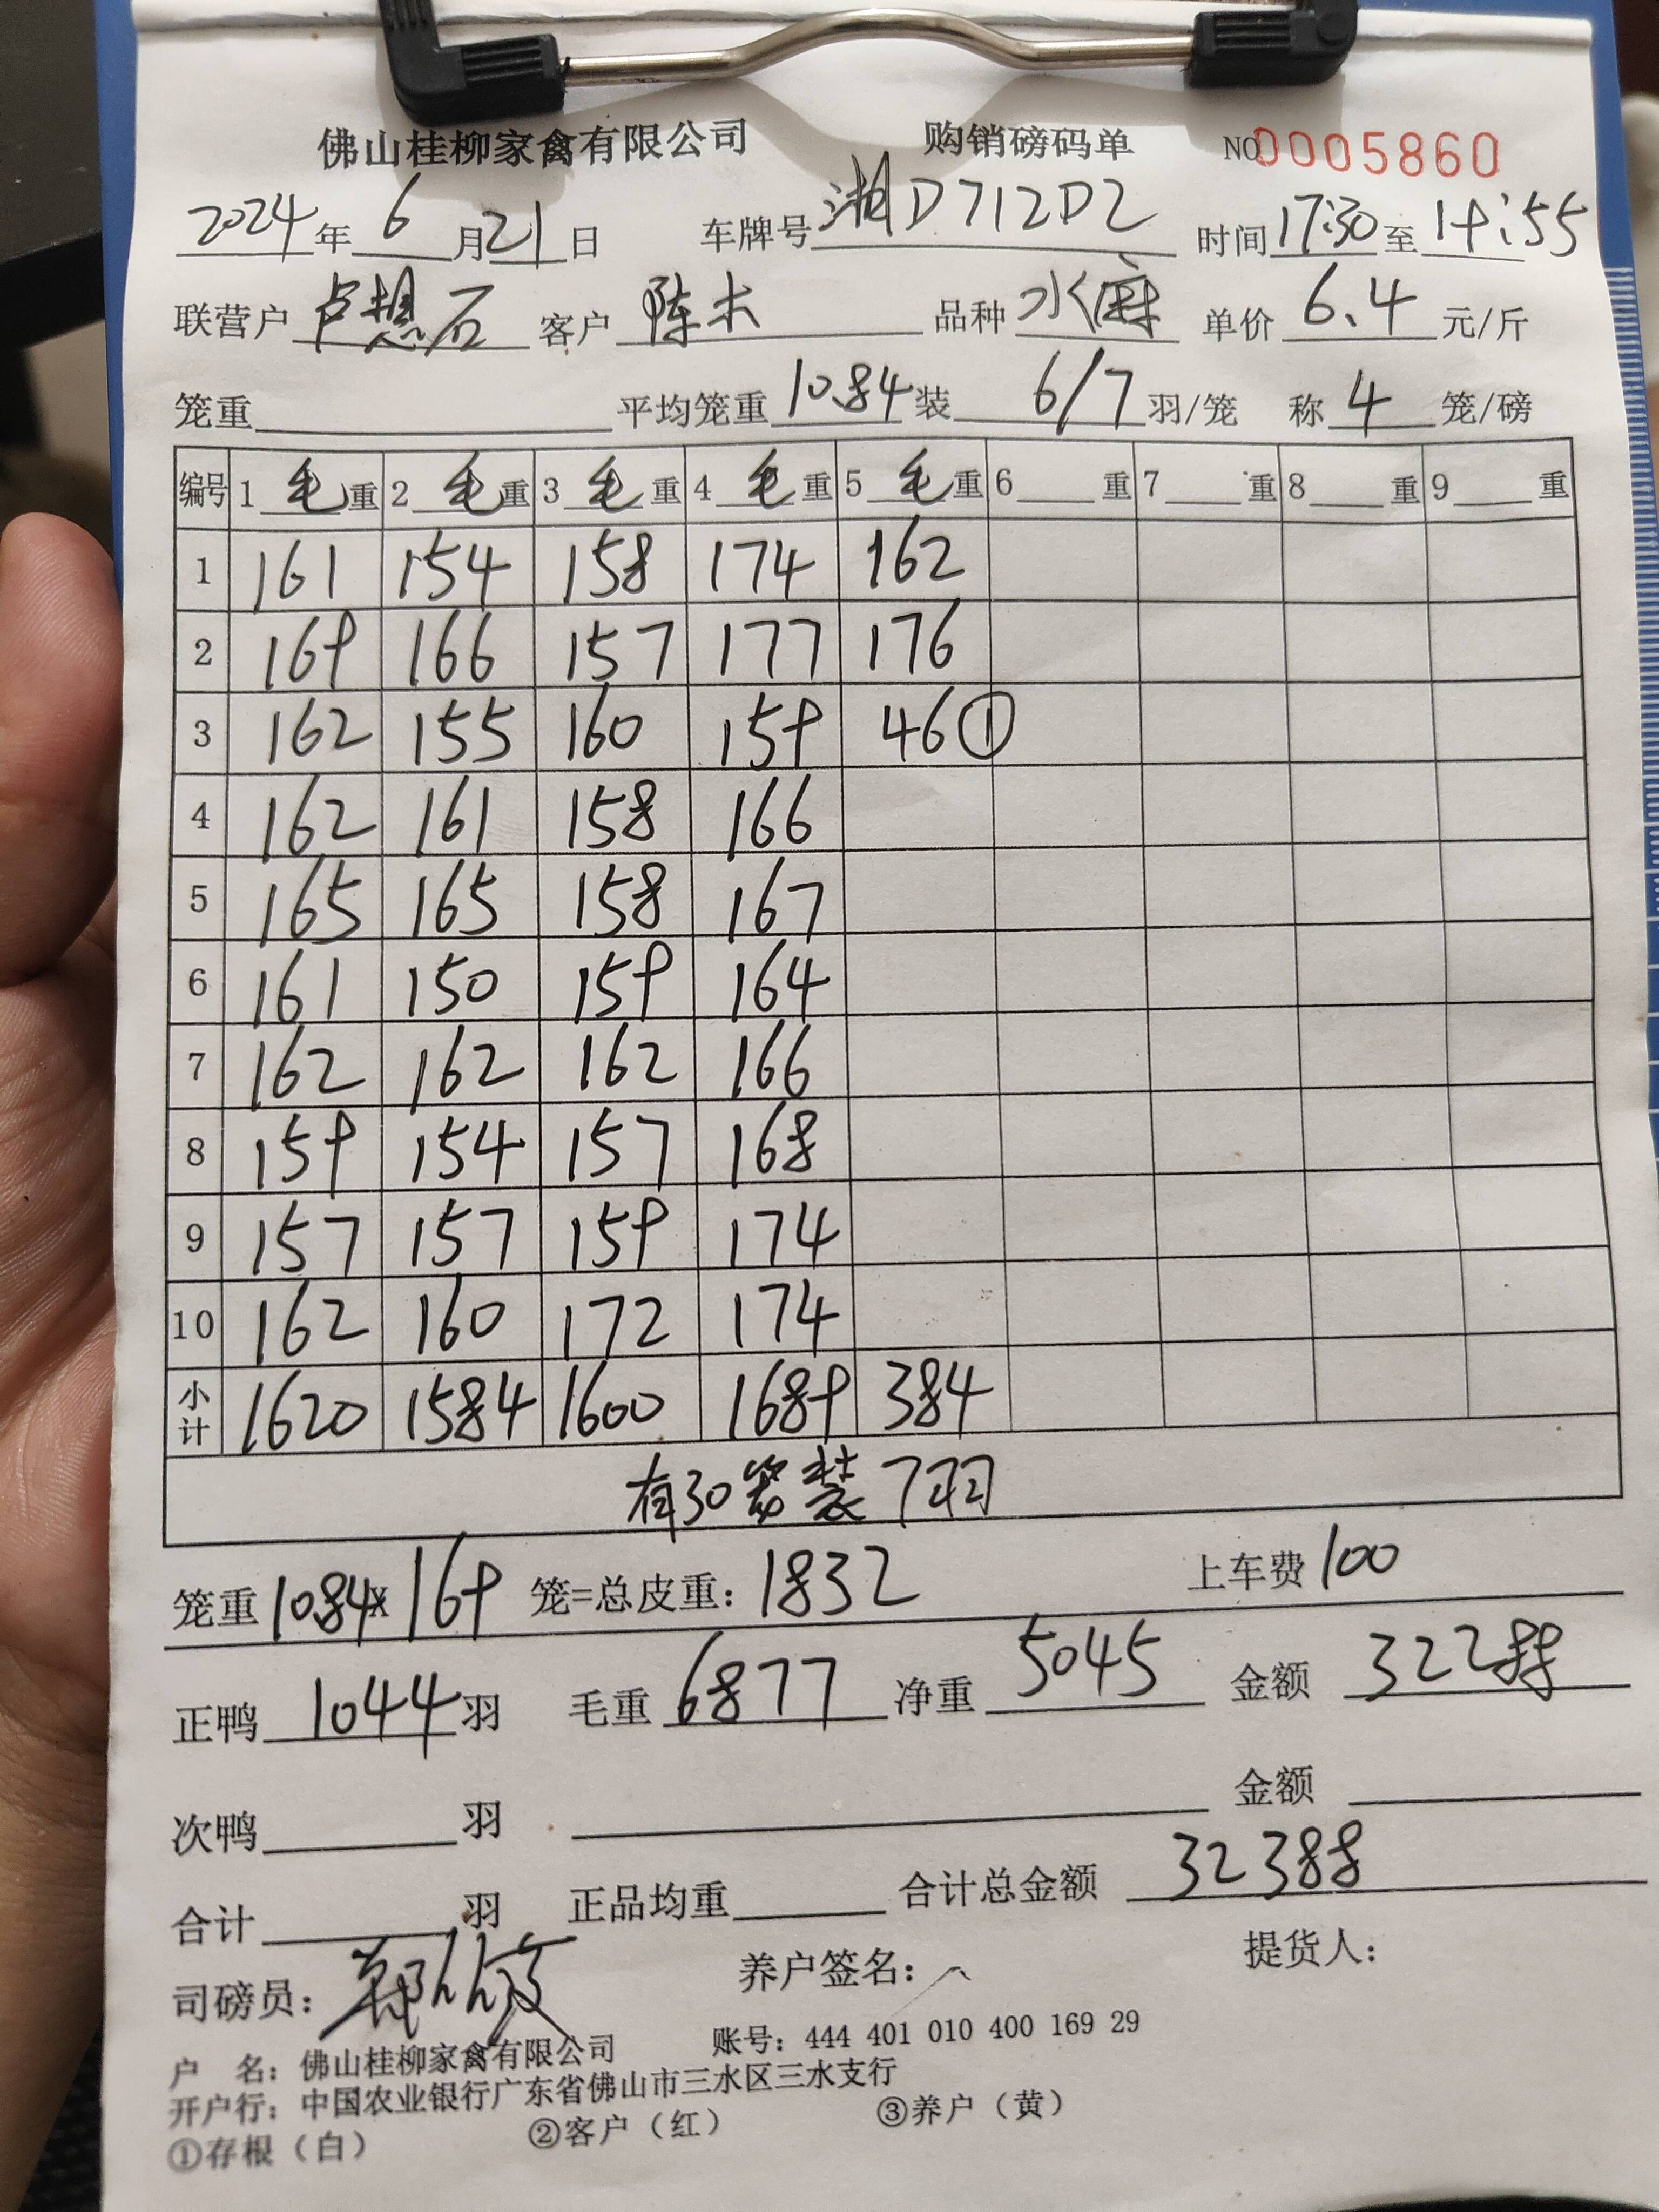 佛山桂柳家禽有限公司 购销磅码单 NO 0005860
2024年6月21日 车牌号 湘D712D2 时间 17:30 至 19:55
联营户 卢想石 客户 陈木 品种 水麻 单价 6.4 元/斤
笼重 平均笼重 10.84 装 6/7 羽/笼 称 4 笼/磅
编号 1 毛 重 2 毛 重 3 毛 重 4 毛 重 5 毛 重 6 重 7 重 8 重 9 重
1 161 154 158 174 162
2 169 166 157 177 176
3 162 155 160 159 46①
4 162 161 158 166
5 165 165 158 167
6 161 150 159 164
7 162 162 162 166
8 159 154 157 168
9 157 157 159 174
10 162 160 172 174
小计 1620 1584 1600 1689 384
有30笼装7羽
笼重 10.84 x 169 笼=总皮重: 1832 上车费 100
正鸭 1044 羽 毛重 6877 净重 5045 金额 32288
次鸭 羽 金额
合计 羽 正品均重 合计总金额 32388
司磅员: 养户签名: 提货人:
户 名: 佛山桂柳家禽有限公司 账号: 444 401 010 400 169 29
开户行: 中国农业银行广东省佛山市三水区三水支行
①存根（白） ②客户（红） ③养户（黄）